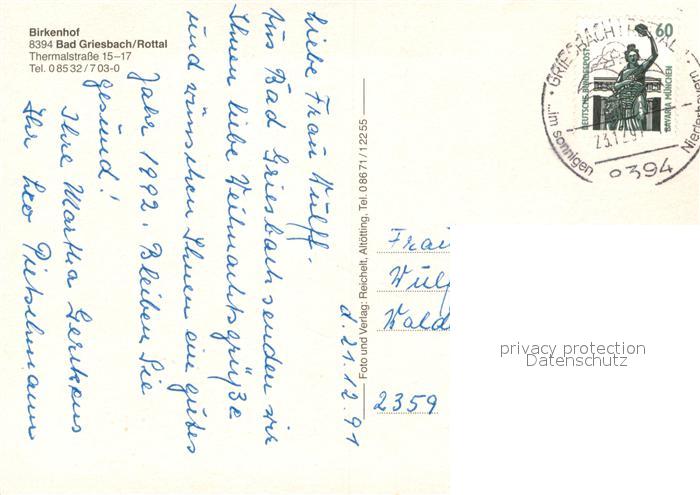 Birkenhof
8394 Bad Griesbach/Rottal
Thermalstraße 15–17
Tel. 0 85 32 / 7 03-0
Liebe Frau Wulff.
Aus Bad Griesbach senden wir
Ihnen liebe Weihnachtsgrüße
und wünschen Ihnen ein gutes
Jahr 1992. Bleiben Sie
gesund!
Ihre Martha Gerikens
Ihr Leo Pietschmann
d. 21.12.91
Foto und Verlag: Reichelt, Altötting, Tel. 0 86 71 / 1 22 55
Frau
Wulf
Wald
2359
60
DEUTSCHE BUNDESPOST
BAVARIA MÜNCHEN
GRIESBACH I
...im sonnigen
8394
privacy protection
Datenschutz